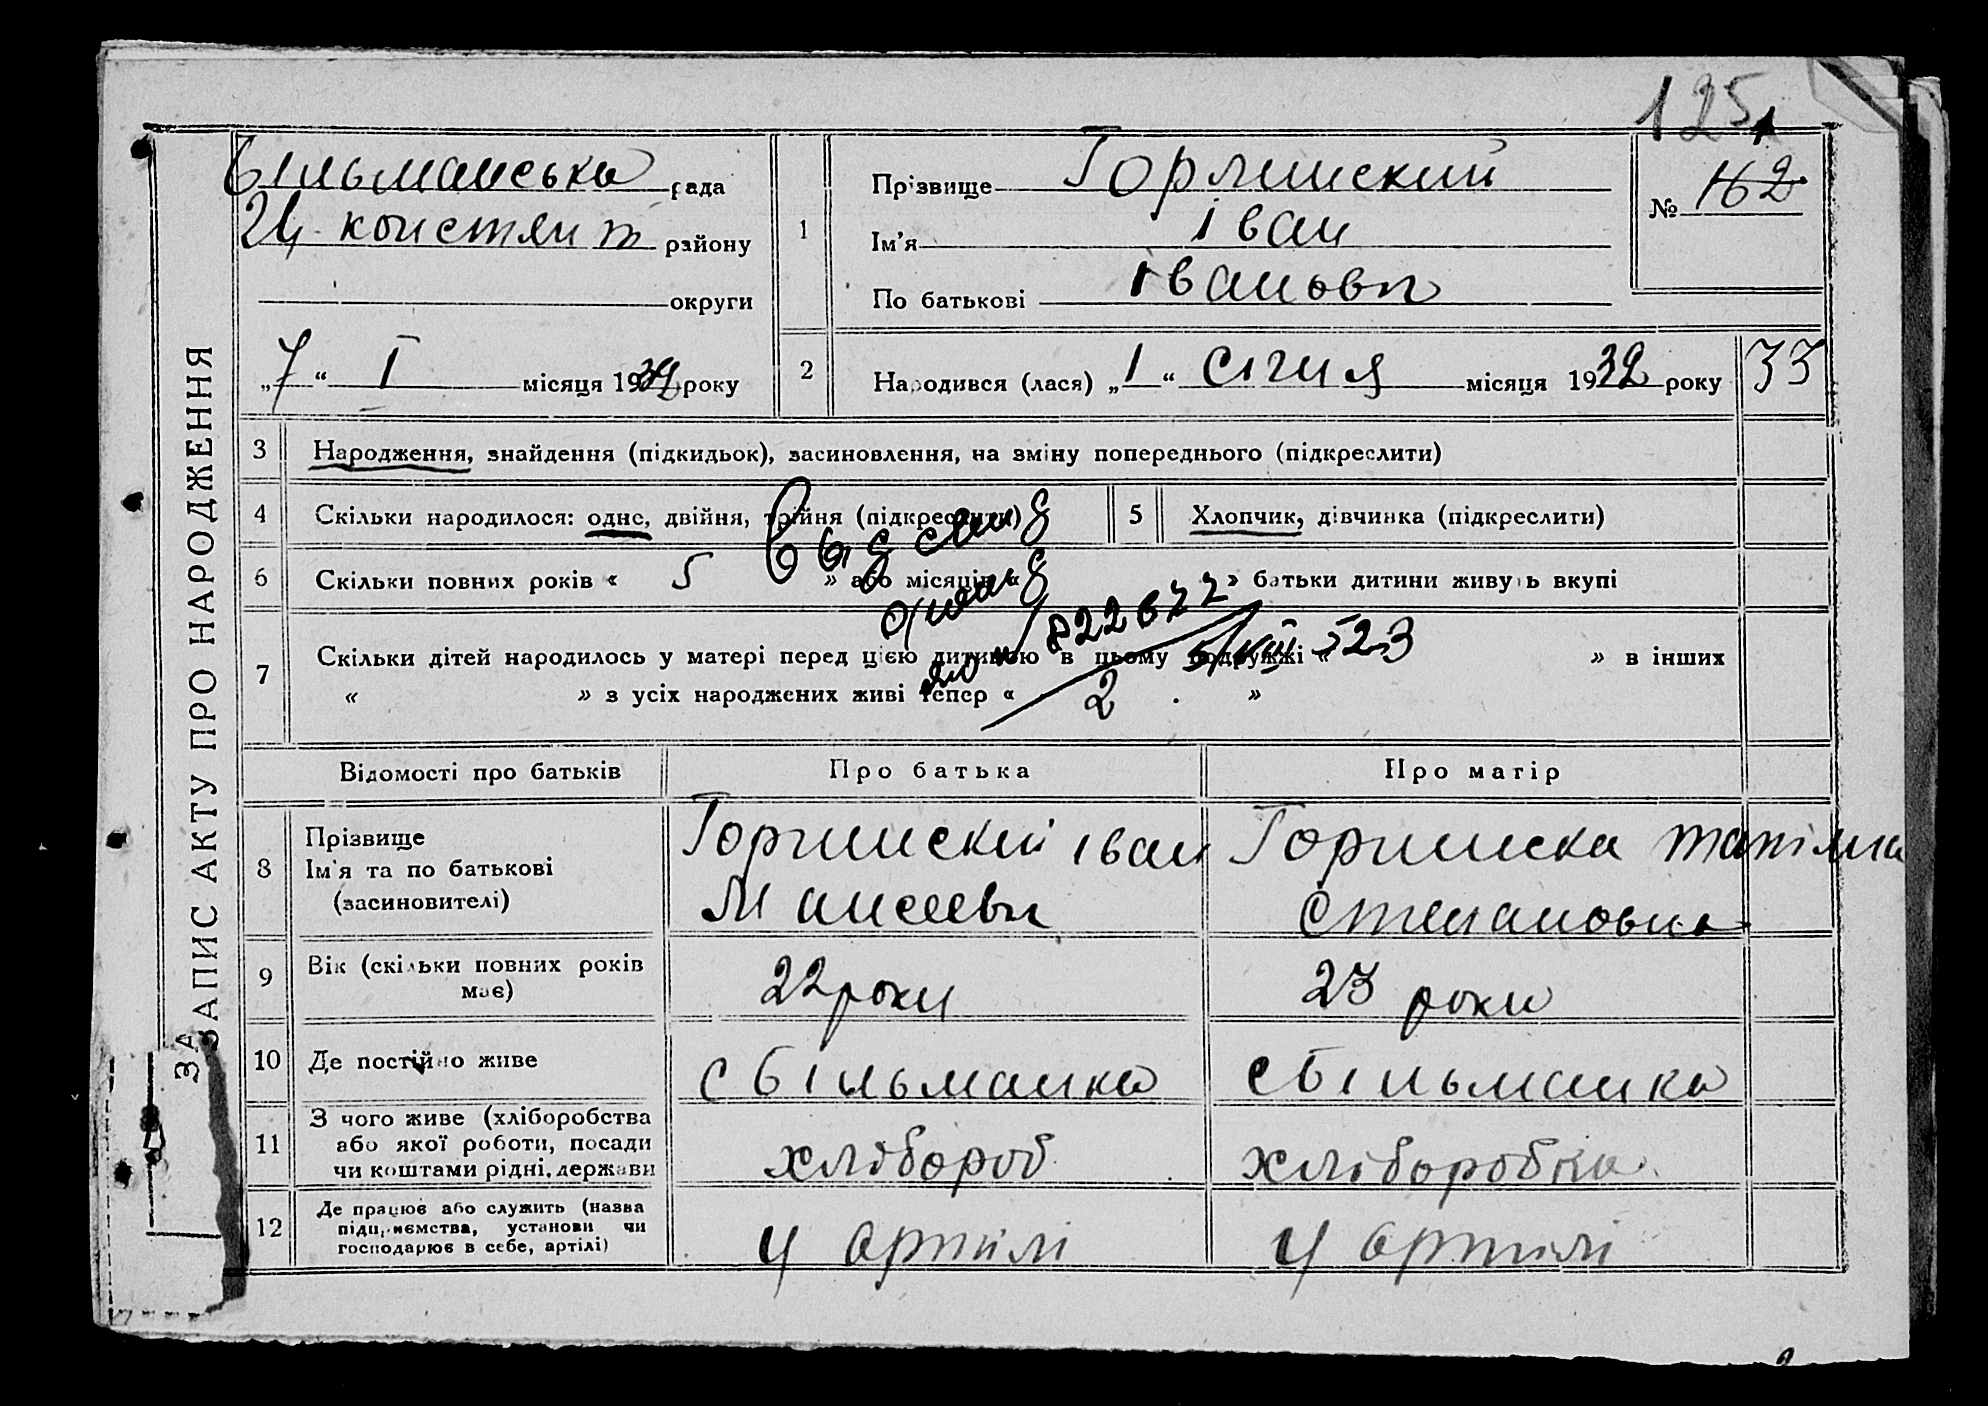 125
Більманська рада
Ц. констянт району
округи
„7“ I місяця 1932 року
ЗАПИС АКТУ ПРО НАРОДЖЕННЯ
1
Прізвище Горлинский
Ім’я Іван
По батькові Івановч
№ 162
2
Народився (лася) „1“ січня місяця 1932 року
33
3 Народження, знайдення (підкидьок), засиновлення, на зміну попереднього (підкреслити)
4 Скільки народилося: одне, двійня, трійня (підкреслити)
5 Хлопчик, дівчинка (підкреслити)
6 Скільки повних років « 5 » або місяців « » батьки дитини живуть вкупі
7 Скільки дітей народилось у матері перед цією дитиною в цьому подружжі « » в інших
« » з усіх народжених живі тепер « 2 »
523
Відомості про батьків Про батька Про матір
8 Прізвище
Ім’я та по батькові
(засиновителі)
Горлинский Іван
Мансеевч
Горлинска
Степановна
9 Вік (скільки повних років
має)
22 роки
23 роки
10 Де постійно живе
с Більманка
с Більманка
11 З чого живе (хліборобства
або якої роботи, посади
чи коштами рідні, держави
хлібороб
хліборобка
12 Де працює або служить (назва
підприємства, установи чи
господарює в себе, артілі)
у артілі
у артілі
ЗА